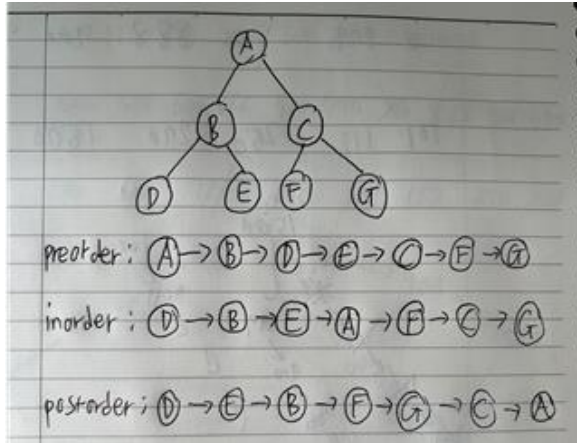 A
B C
D E F G
preorder: A → B → D → E → C → F → G
inorder: D → B → E → A → F → C → G
postorder; D → E → B → F → G → C → A